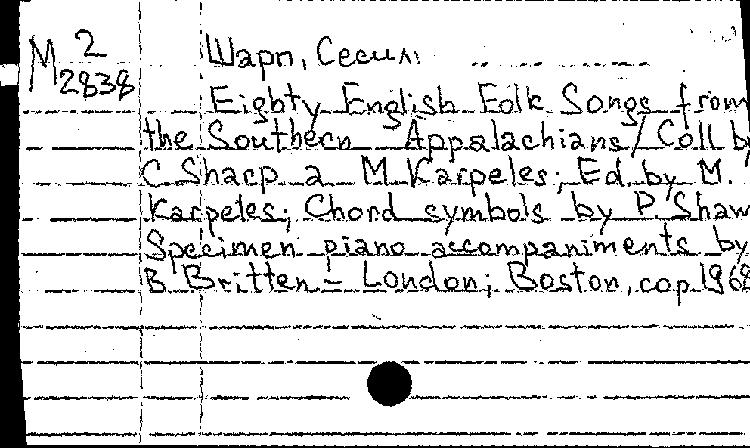 M 2
2838
Шарп, Сесил.
Eighty English Folk Songs from
the Southern Appalachians / Coll by
C Sharp a M Karpeles; Ed. by M.
Karpeles; Chord symbols by P. Shaw
Specimen piano accompaniments by
B Britten – London; Boston, cop 1968